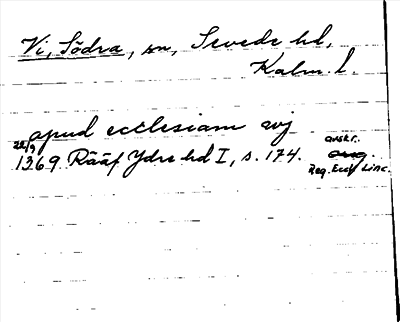 Vi, Södra, sn, Sevede hd,
Kalm. l.
apud ecclesiam wj
22/9 1369 Rääf Ydre hd I, s. 174. avskr.
Reg. Eccl. Linc.